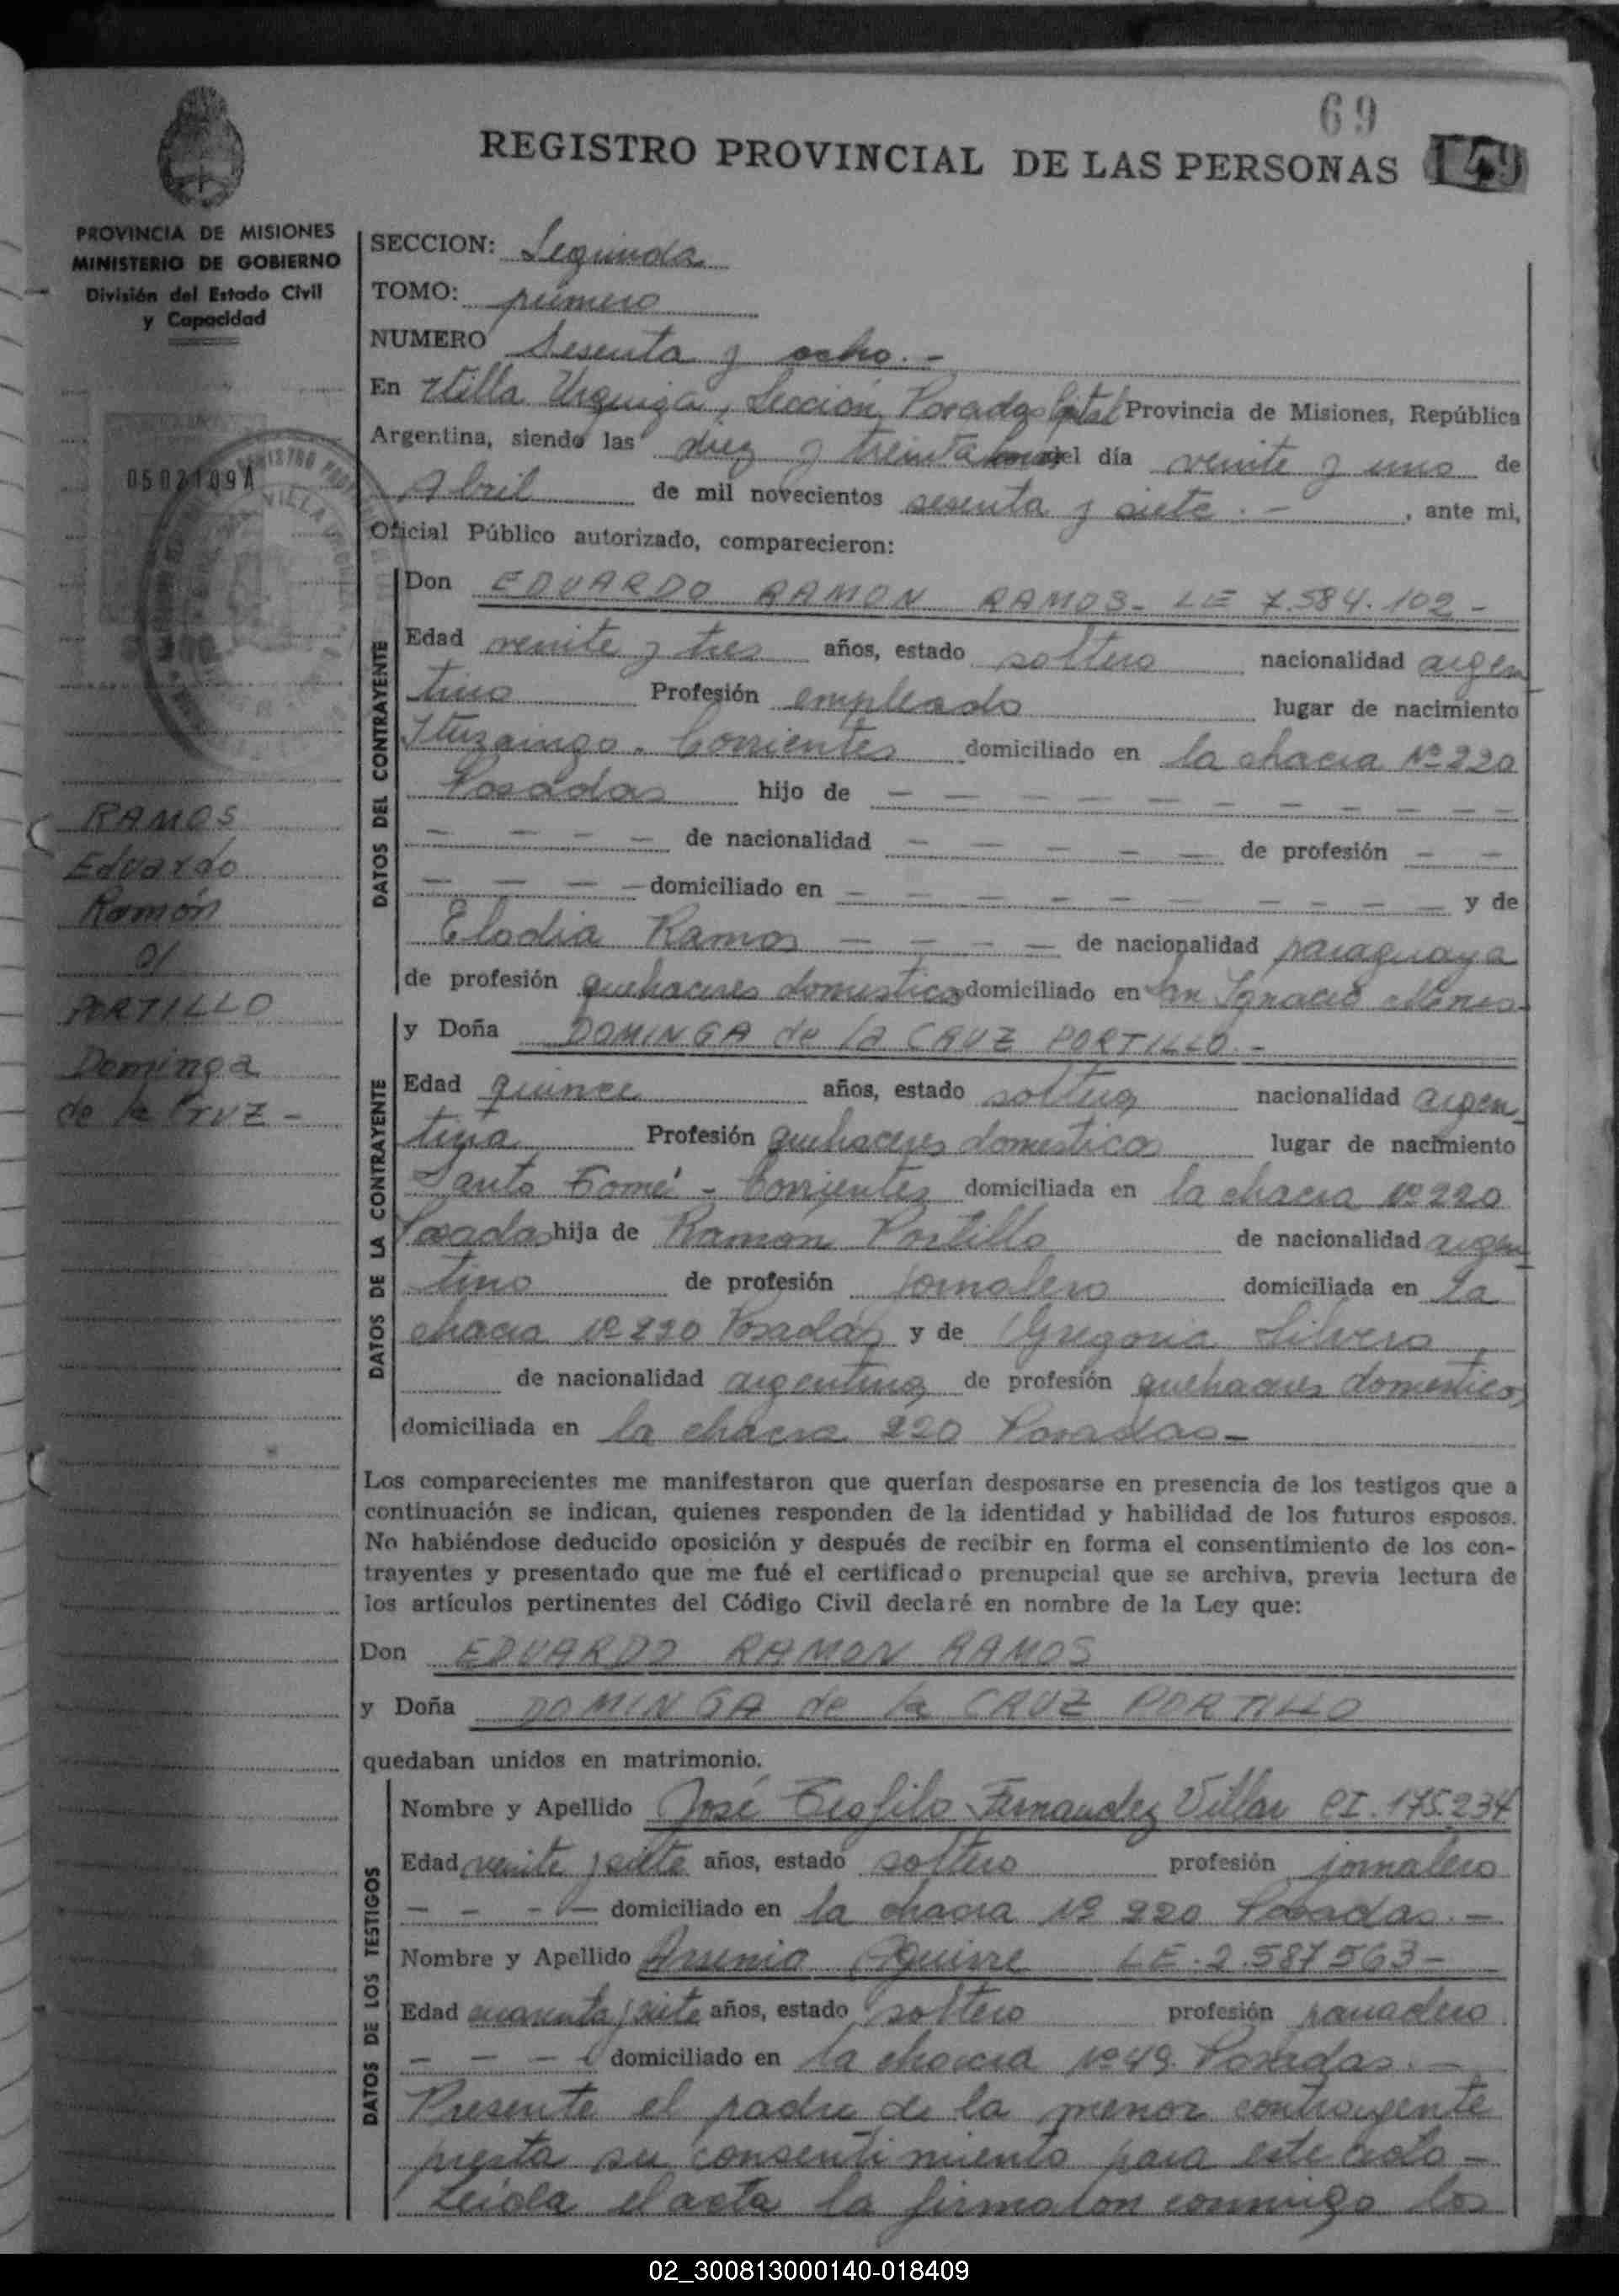 69
REGISTRO PROVINCIAL DE LAS PERSONAS 149
PROVINCIA DE MISIONES
MINISTERIO DE GOBIERNO
División del Estado Civil
y Capacidad
0502109A
RAMOS
Eduardo
Ramón
c/
PORTILLO
Dominga
de la Cruz -
SECCION: Segunda
TOMO: primero
NUMERO Sesenta y ocho. -
En Villa Urquiza, Sección Posadas Capital Provincia de Misiones, República
Argentina, siendo las diez y treinta horas del día veinte y uno de
Abril de mil novecientos sesenta y siete. - , ante mi,
Oficial Público autorizado, comparecieron:
DATOS DEL CONTRAYENTE
Don EDUARDO RAMON RAMOS - LE 7.584.102 -
Edad veinte y tres años, estado soltero nacionalidad argen
tino Profesión empleado lugar de nacimiento
Ituzaingo - Corrientes domiciliado en la chacra Nº 220
Posadas hijo de - - - - - - - - - - -
- - - - - de nacionalidad - - - - - de profesión - -
- - - - domiciliado en - - - - - - - - - y de
Elodia Ramos - - - - de nacionalidad paraguaya
de profesión quehaceres domesticos domiciliado en San Ignacio Mnes-
DATOS DE LA CONTRAYENTE
y Doña DOMINGA de la CRUZ PORTILLO. -
Edad quince años, estado soltera nacionalidad argen
tina Profesión quehaceres domesticos lugar de nacimiento
Santo Tomé - Corrientes domiciliada en la chacra Nº 220
Posadas hija de Ramón Portillo de nacionalidad argen
tino de profesión jornalero domiciliada en la
chacra Nº 220 Posadas y de Gregoria Silvero
de nacionalidad argentina de profesión quehaceres domesticos
domiciliada en la chacra 220 Posadas -
Los comparecientes me manifestaron que querían desposarse en presencia de los testigos que a
continuación se indican, quienes responden de la identidad y habilidad de los futuros esposos.
No habiéndose deducido oposición y después de recibir en forma el consentimiento de los con-
trayentes y presentado que me fué el certificado prenupcial que se archiva, previa lectura de
los artículos pertinentes del Código Civil declaré en nombre de la Ley que:
Don EDUARDO RAMON RAMOS
y Doña DOMINGA de la CRUZ PORTILLO
quedaban unidos en matrimonio.
DATOS DE LOS TESTIGOS
Nombre y Apellido José Teofilo Fernandez Villar CI. 175.234
Edad veinte y siete años, estado soltero profesión jornalero
- - - - domiciliado en la chacra Nº 220 Posadas. -
Nombre y Apellido Arsenio Aguirre LE. 2.587563 -
Edad cuarenta y siete años, estado soltero profesión panadero
- - - - domiciliado en la chacra Nº 49 Posadas. -
Presente el padre de la menor contrayente
presta su consentimiento para este acto -
Leída el acta la firmaron conmigo los
02_300813000140-018409